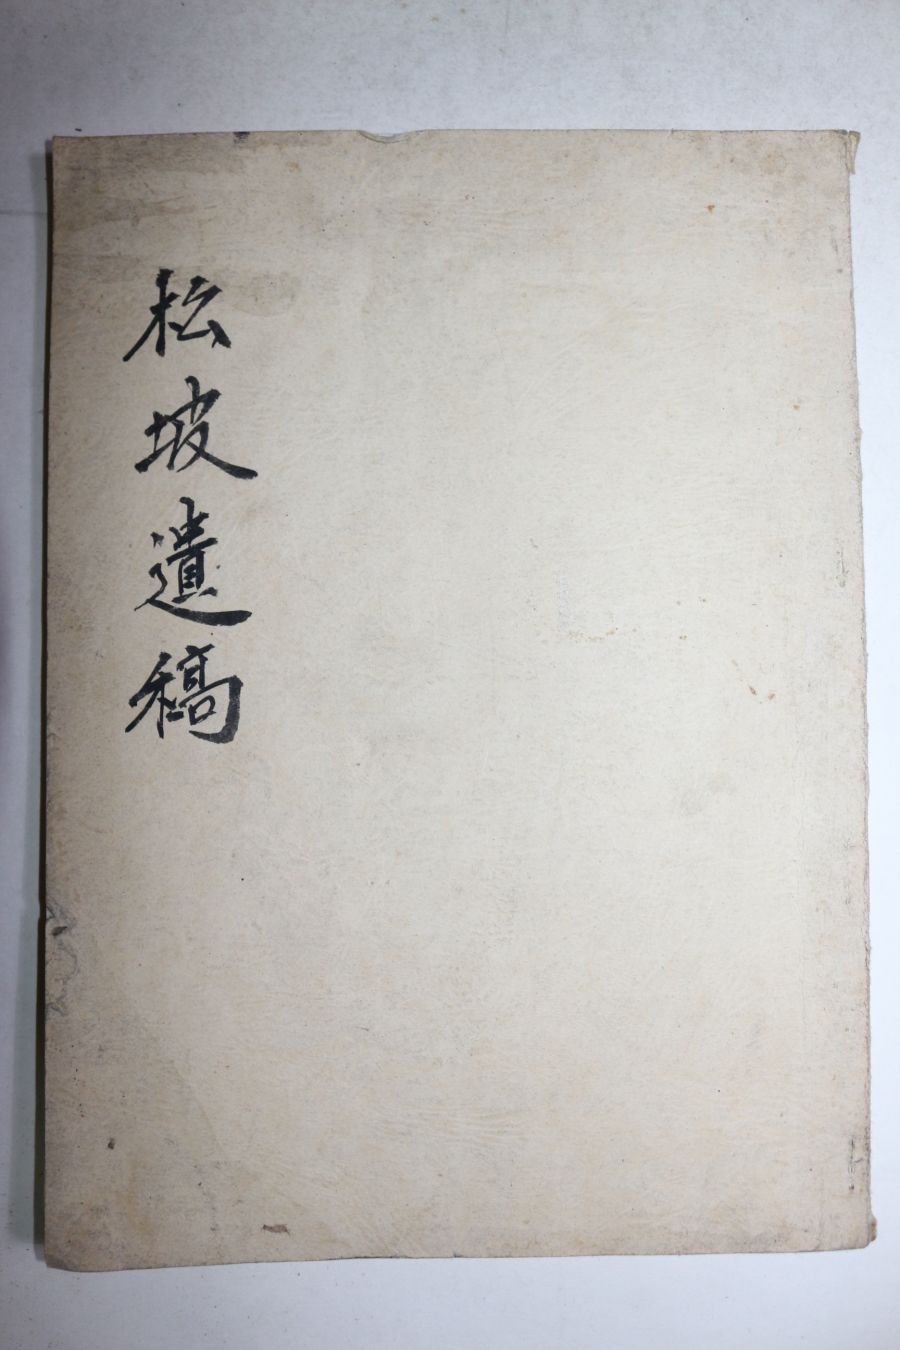 松坡遺稿